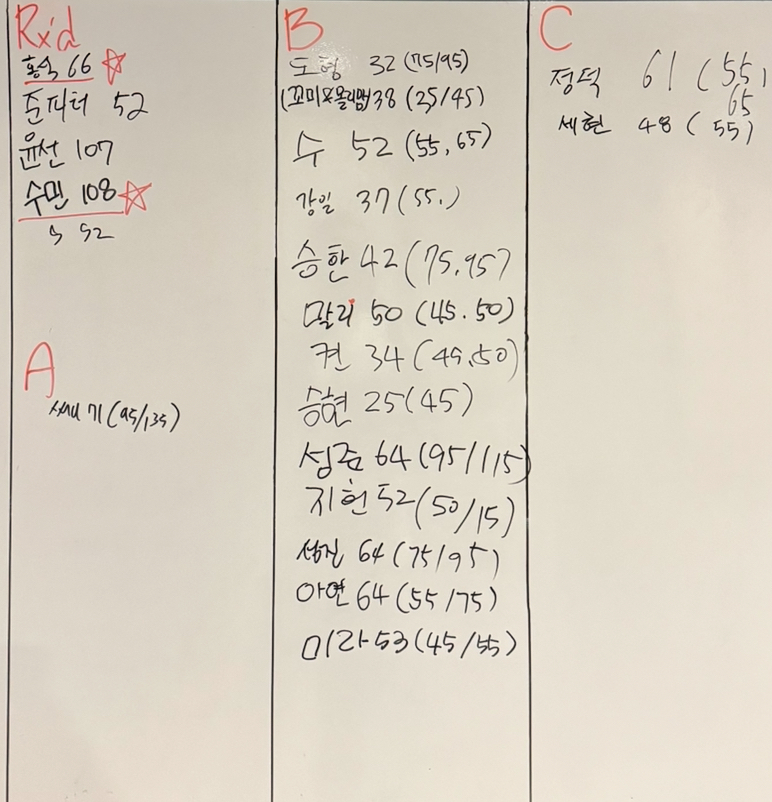 Rx'd
홍식 66
준피터 52
윤선 107
수민 108
수 52
A
71 (95/135)
B
도형 32 (75/95)
38 (25/45)
수 52 (55, 65)
강일 37 (55.)
승한 42 (75, 95)
말리 50 (45. 50)
켠 34 (45.50)
승현 25 (45)
성준 64 (95/115)
지헌 52 (50/15)
성진 64 (75/95)
아연 64 (55/75)
미라 53 (45/55)
C
정덕 61 (55,
65
세현 48 (55)